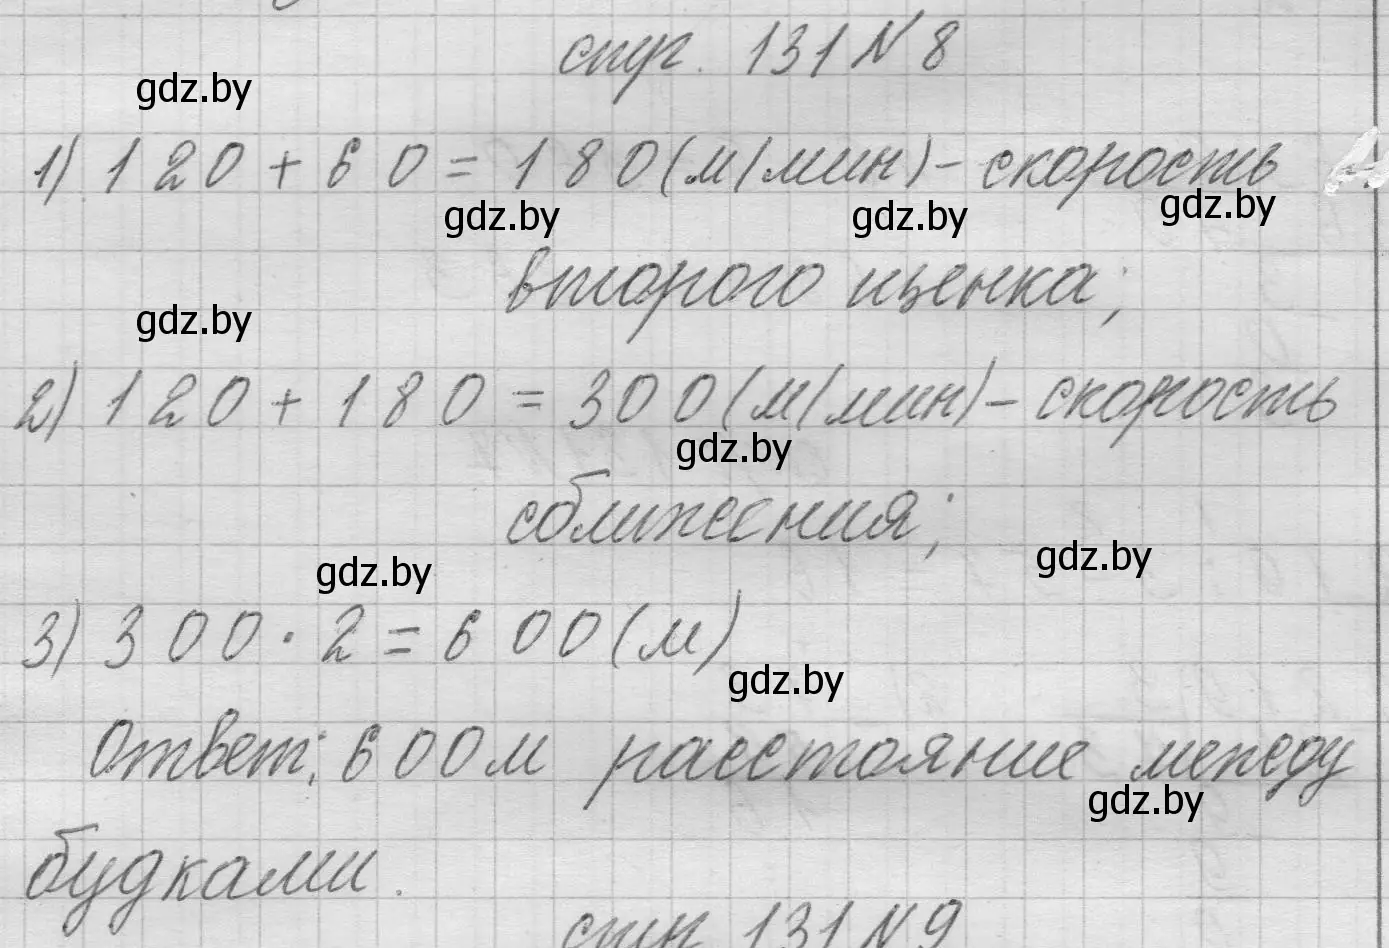 стр. 131 № 8
gdz.by
1) 120 + 60 = 180 (м/мин) - скорость
gdz.by gdz.by gdz.by
второго щенка;
gdz.by
2) 120 + 180 = 300 (м/мин) - скорость
gdz.by
сближения;
gdz.by gdz.by
3) 300 · 2 = 600 (м)
gdz.by
Ответ: 600 м расстояние между
gdz.by
будками.
стр. 131 № 9